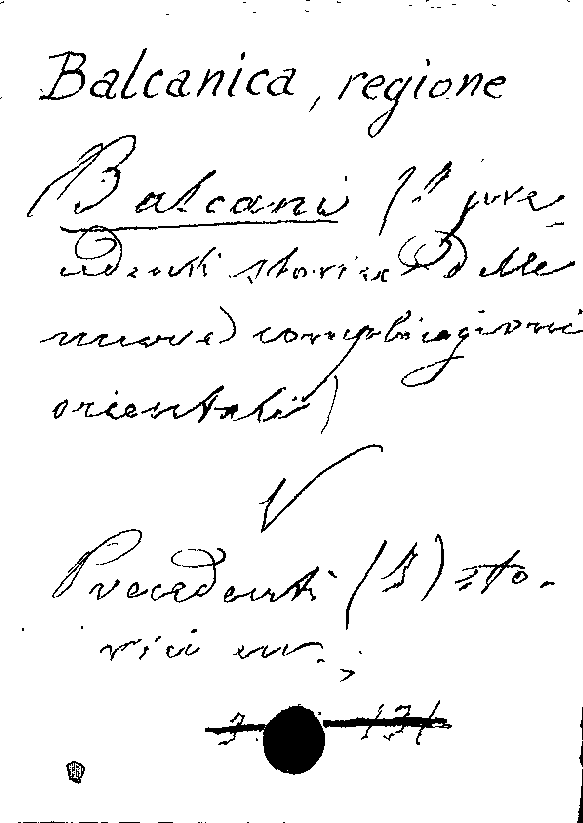 Balcanica, regione
Balcani (I prece-
denti storici delle
nuove complicazioni
orientali)
V
Precedenti (I) sto-
rici ecc.;